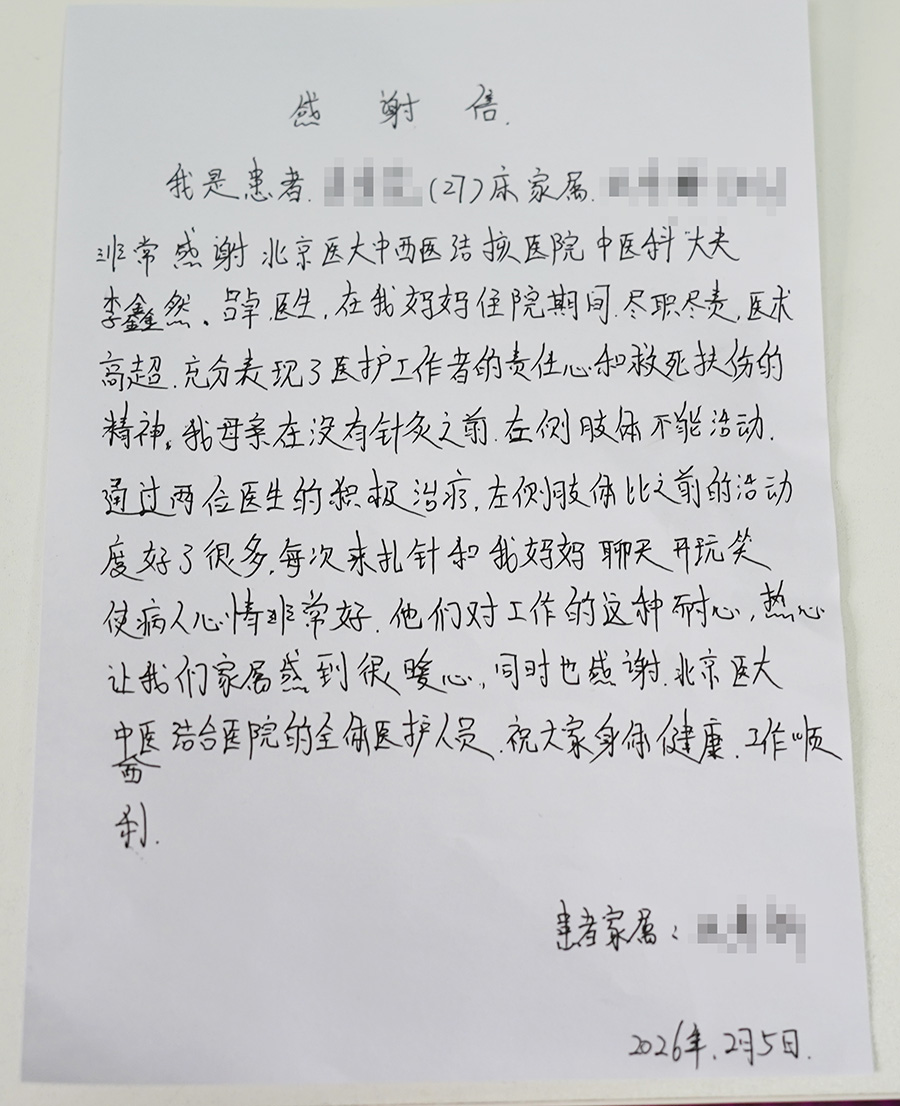 感谢信.
我是患者.(27)床家属.
非常感谢北京医大中西医结核医院中医科大夫
李鑫然、吕卓.医生,在我妈妈住院期间.尽职尽责,医术
高超.充分表现了医护工作者的责任心和救死扶伤的
精神。我母亲在没有针灸之前.左侧肢体不能活动.
通过两位医生的积极治疗,左侧肢体比之前的活动
度好了很多,每次来扎针和我妈妈聊天开玩笑
使病人心情非常好.他们对工作的这种耐心,热心
让我们家属感到很暖心,同时也感谢.北京医大
中西医结合医院的全体医护人员.祝大家身体健康.工作顺
利.
患者家属:
2026年.2月5日.